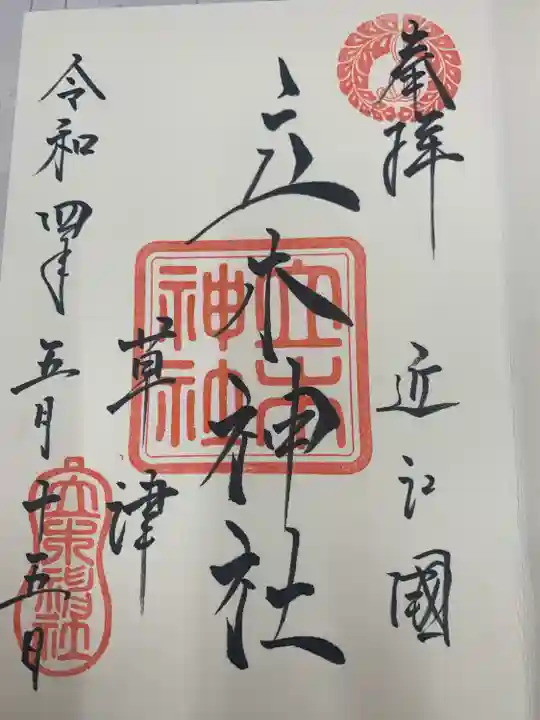 奉拝
近江國
立木神社
立木神社
草津
令和四年五月十五日
立木神社